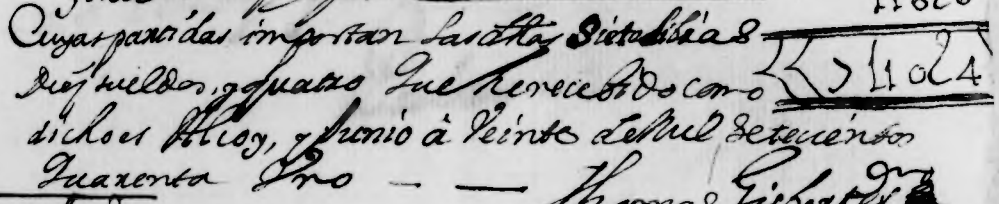 Cuyas partidas importan las dhas Siete libras
Diez sueldos, y quatro Que he recebido como
dicho es Alcoy, y Junio à Veinte de Mil Setecientos
Quarenta Uno
Thomas Gisbert